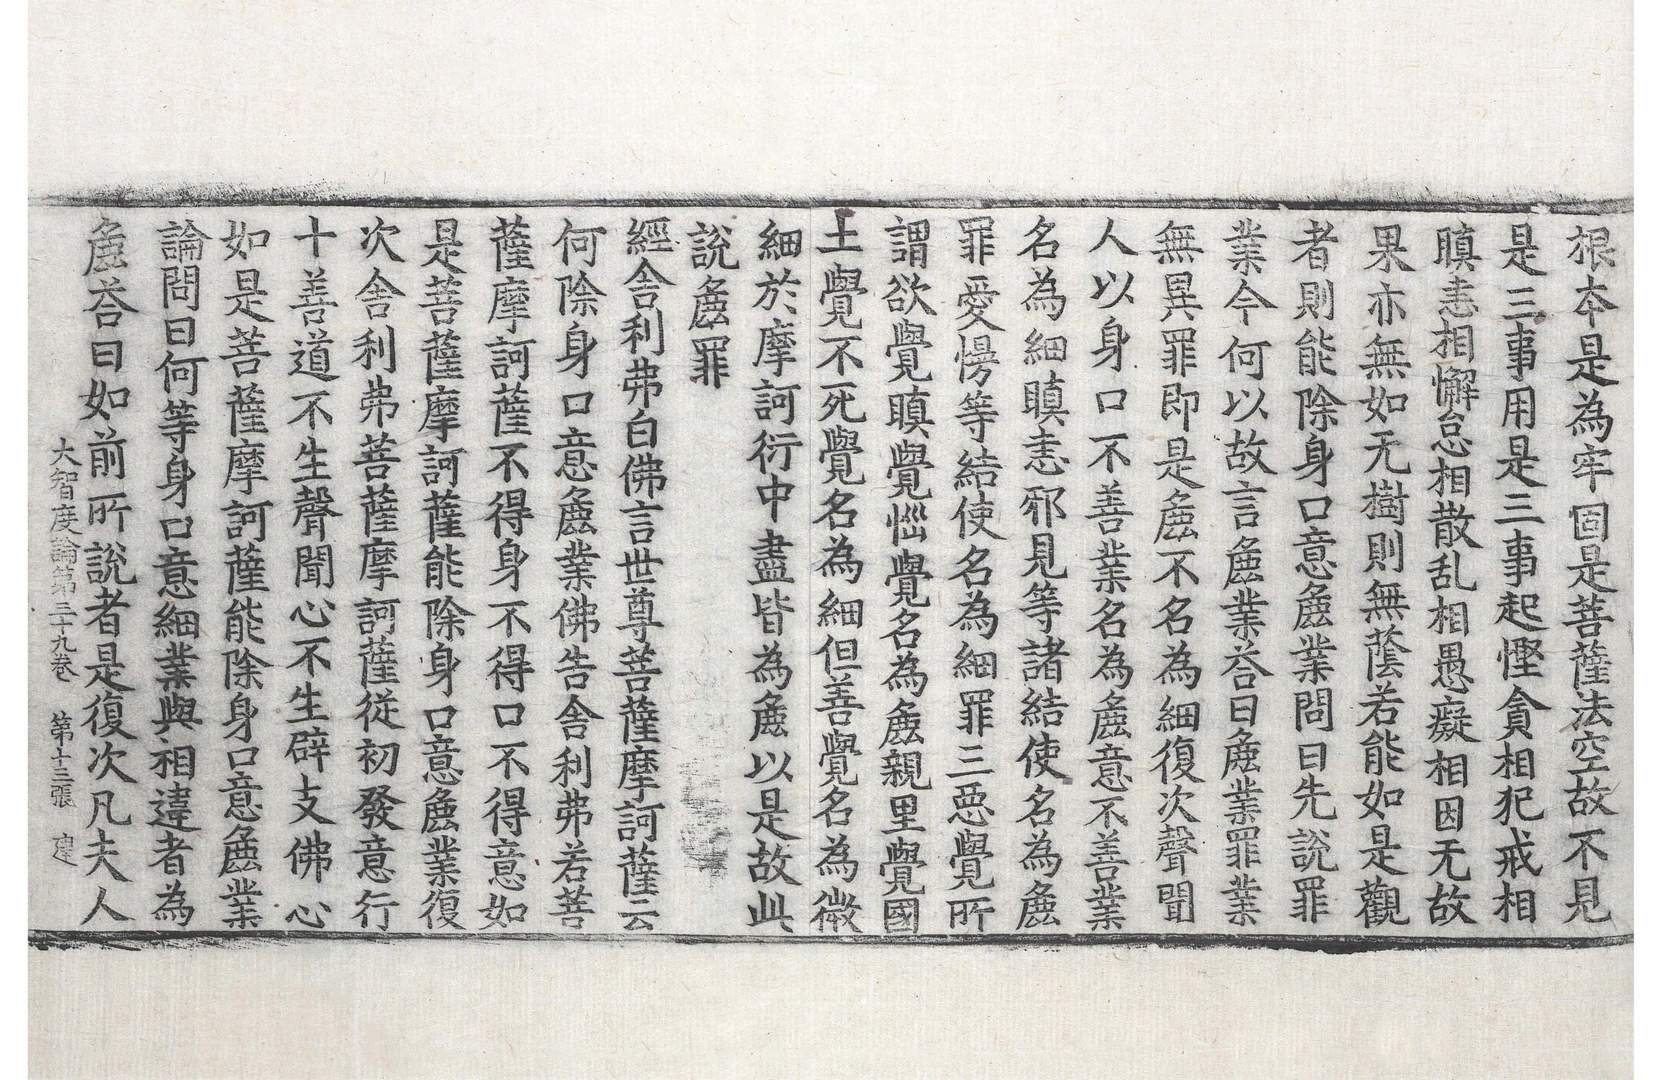 根本是為牢固是菩薩法空故不見
是三事用是三事起慳貪相犯戒相
瞋恚相懈怠相散乱相愚癡相因无故
果亦無如无樹則無蔭若能如是觀
者則能除身口意麁業問曰先說罪
業今何以故言麁業荅曰麁業罪業
無異罪即是麁不名為細復次聲聞
人以身口不善業名為麁意不善業
名為細瞋恚邪見等諸結使名為麁
罪愛慢等結使名為細罪三惡覺所
謂欲覺瞋覺惱覺名為麁親里覺國
土覺不死覺名為細但善覺名為微
細於摩訶衍中盡皆為麁以是故此
說麁罪
經舍利弗白佛言世尊菩薩摩訶薩云
何除身口意麁業佛告舍利弗若菩
薩摩訶薩不得身不得口不得意如
是菩薩摩訶薩能除身口意麁業復
次舍利弗菩薩摩訶薩從初發意行
十善道不生聲聞心不生辟支佛心
如是菩薩摩訶薩能除身口意麁業
論問曰何等身口意細業與相違者為
麁荅曰如前所說者是復次凡夫人
大智度論第三十九卷 第十三張 建